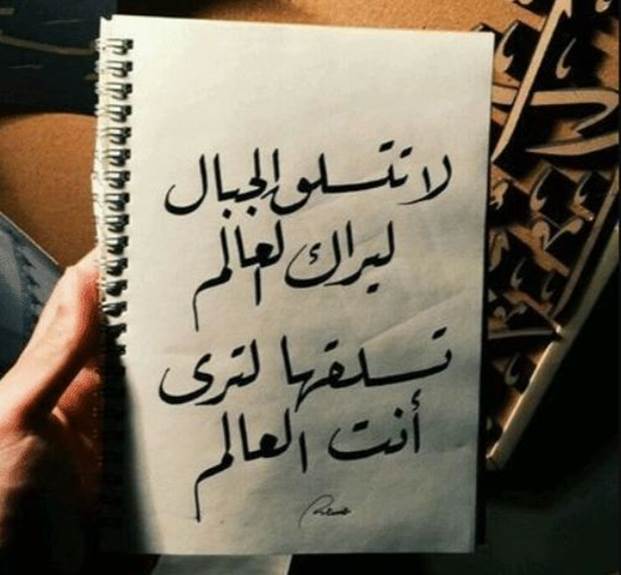 لا تتسلق الجبال
ليراك العالم
تسلقها لترى
أنت العالم